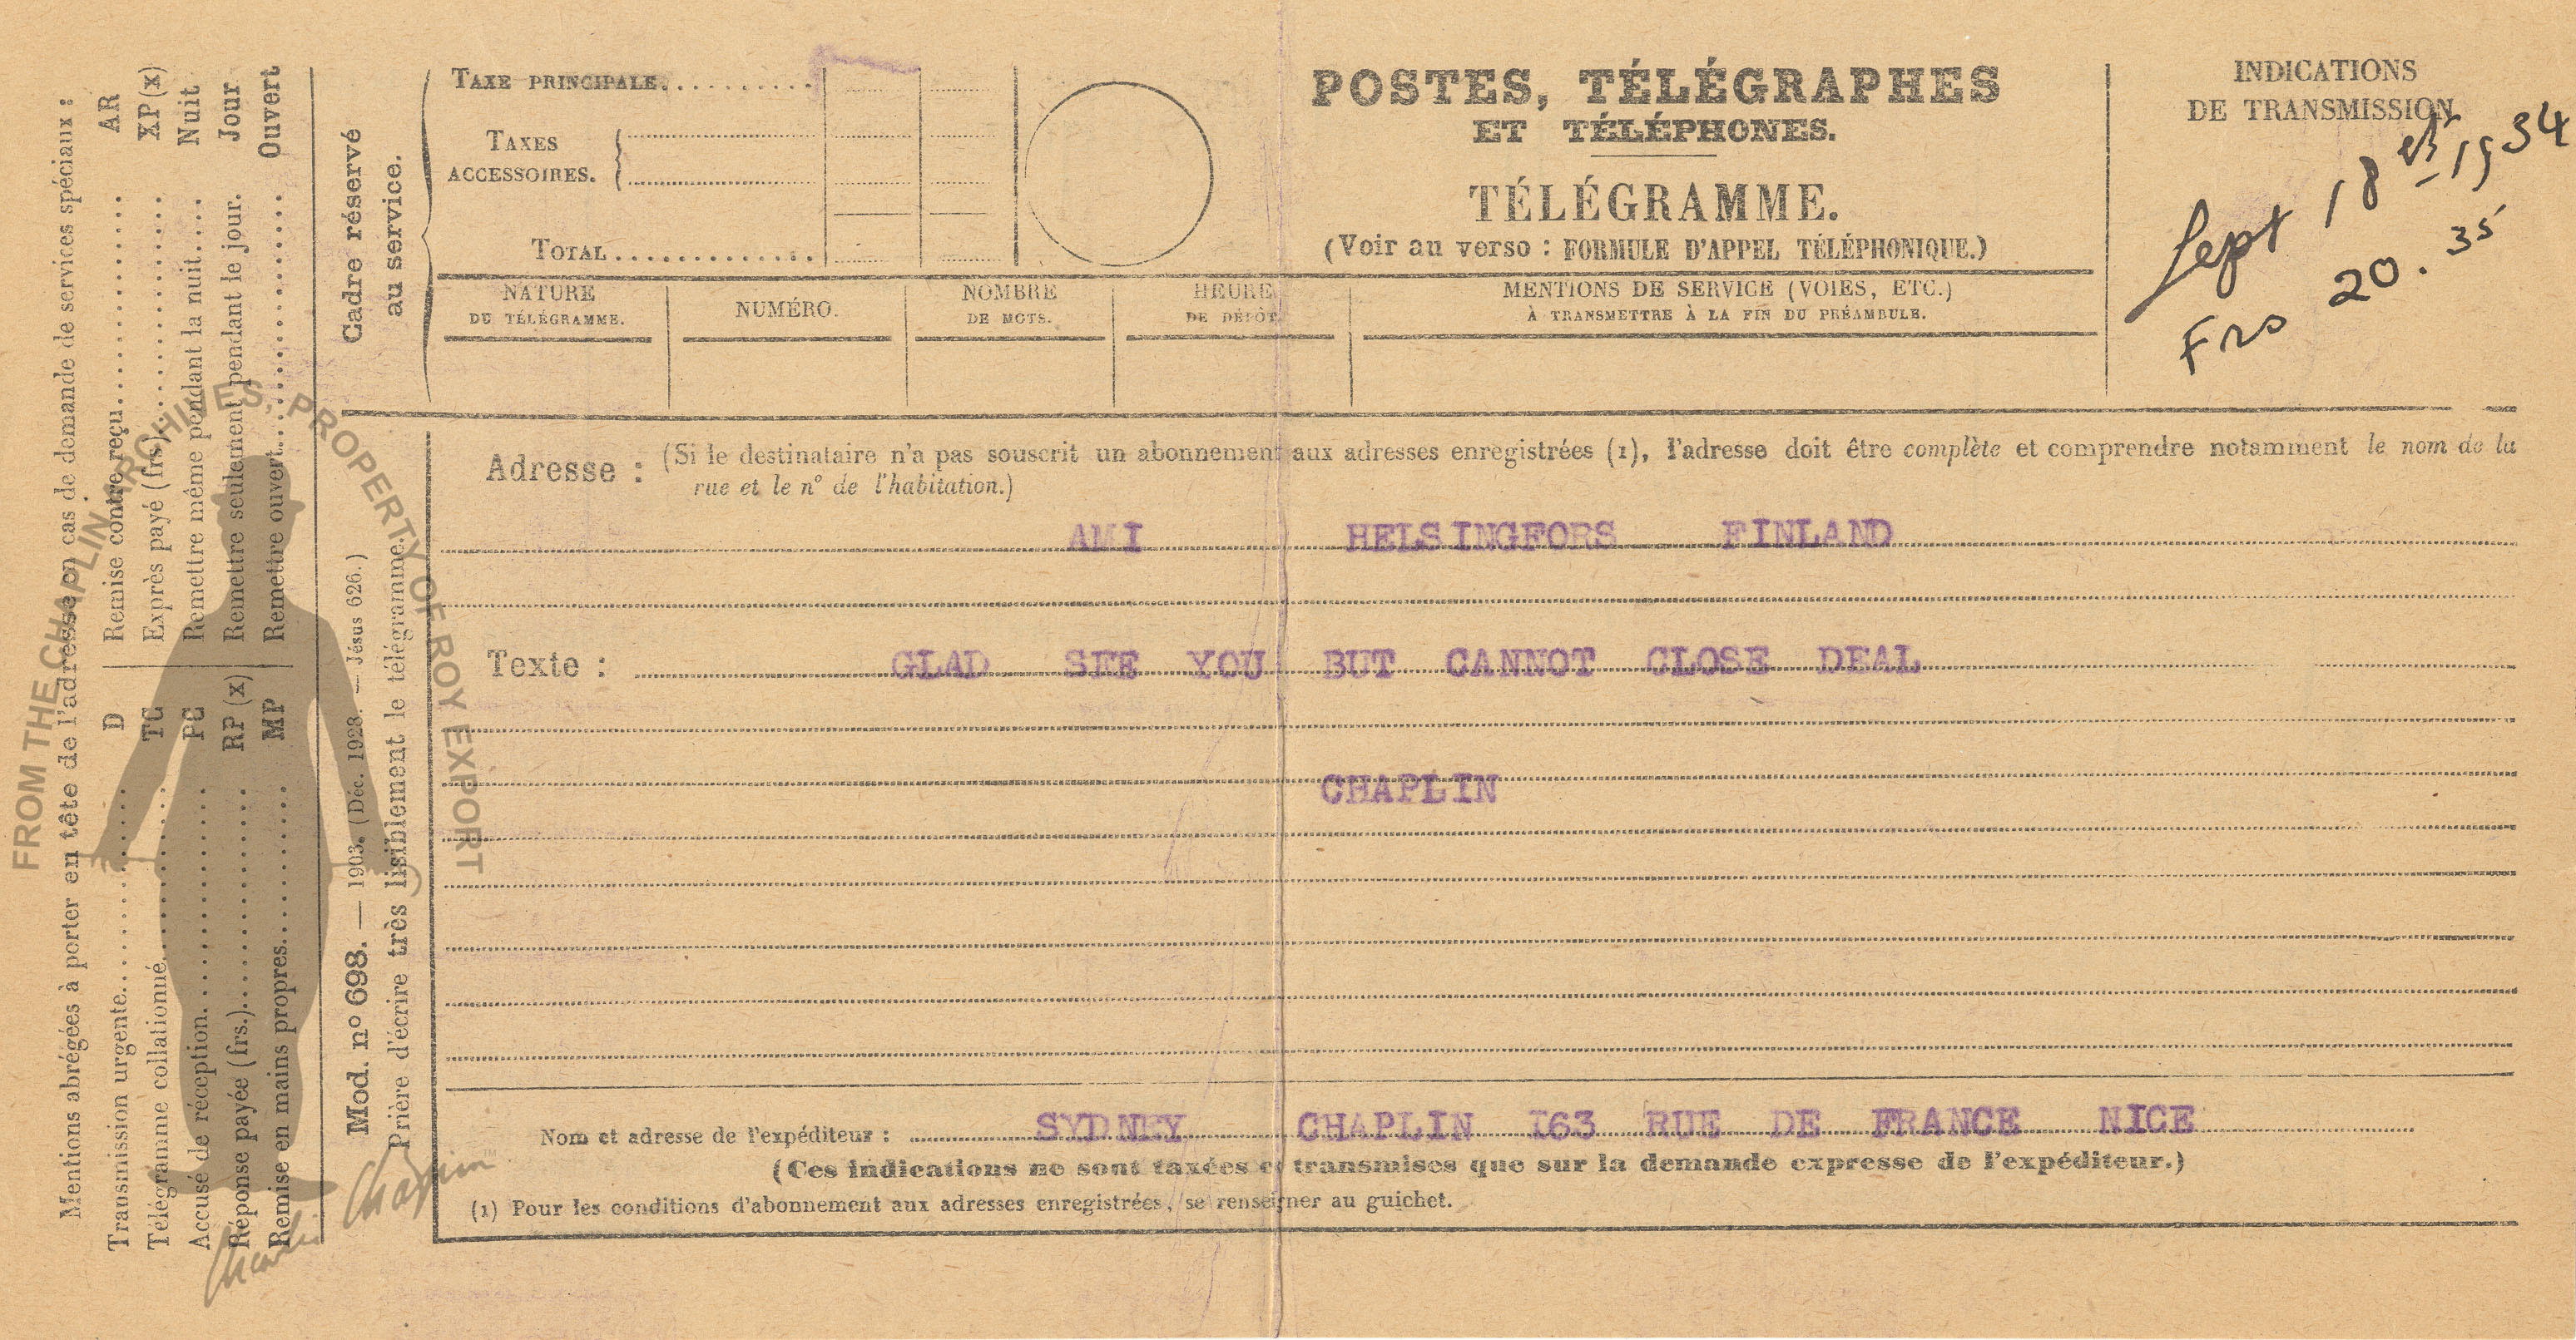 TAXE PRINCIPALE..........
TAXES
ACCESSOIRES.
TOTAL.............
Cadre réservé
au service.
POSTES, TÉLÉGRAPHES
ET TÉLÉPHONES.
TÉLÉGRAMME.
(Voir au verso : FORMULE D'APPEL TÉLÉPHONIQUE.)
INDICATIONS
DE TRANSMISSION
Sept 18 1934
Frs 20.35
NATURE
DU TÉLÉGRAMME.
NUMÉRO.
NOMBRE
DE MOTS.
HEURE
DE DÉPÔT.
MENTIONS DE SERVICE (VOIES, ETC.)
À TRANSMETTRE À LA FIN DU PRÉAMBULE.
Adresse : (Si le destinataire n'a pas souscrit un abonnement aux adresses enregistrées (1), l'adresse doit être complète et comprendre notamment le nom de la
rue et le n° de l'habitation.)
AMI HELSINGFORS FINLAND
Texte : GLAD SEE YOU BUT CANNOT CLOSE DEAL
CHAPLIN
Nom et adresse de l'expéditeur : SYDNEY CHAPLIN I63 RUE DE FRANCE NICE
(Ces indications ne sont taxées et transmises que sur la demande expresse de l'expéditeur.)
(1) Pour les conditions d'abonnement aux adresses enregistrées, se renseigner au guichet.
Mentions abrégées à porter en tête de l'adresse en cas de demande de services spéciaux :
Transmission urgente.......... D
Télégramme collationné.......... TC
Accusé de réception.......... PC
Réponse payée (frs.).......... RP (x)
Remise en mains propres.......... MP
Remise contre reçu.......... AR
Exprès payé (frs).......... XP (x)
Remettre même pendant la nuit.... Nuit
Remettre seulement pendant le jour. Jour
Remettre ouvert.......... Ouvert
Mod. n° 698. — 1903. (Déc. 1928. — Jésus 626.)
Prière d'écrire très lisiblement le télégramme.
FROM THE CHAPLIN ARCHIVES, PROPERTY OF ROY EXPORT
Charlie Chaplin™